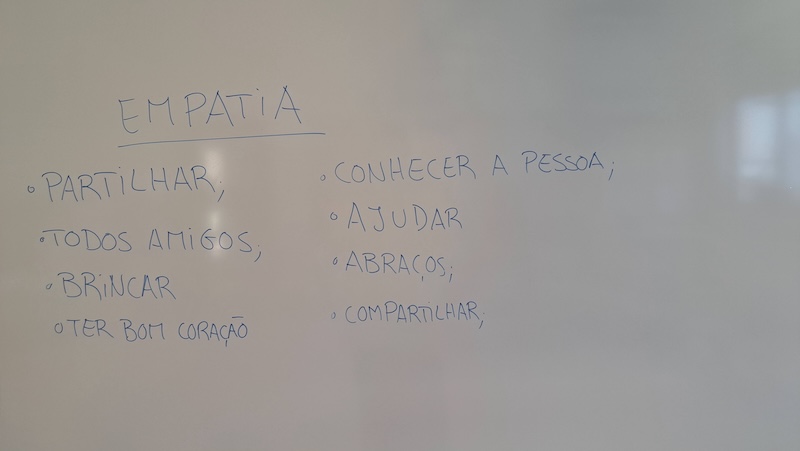 EMPATIA
• PARTILHAR;
• TODOS AMIGOS;
• BRINCAR
• TER BOM CORAÇÃO
• CONHECER A PESSOA;
• AJUDAR
• ABRAÇOS;
• COMPARTILHAR;